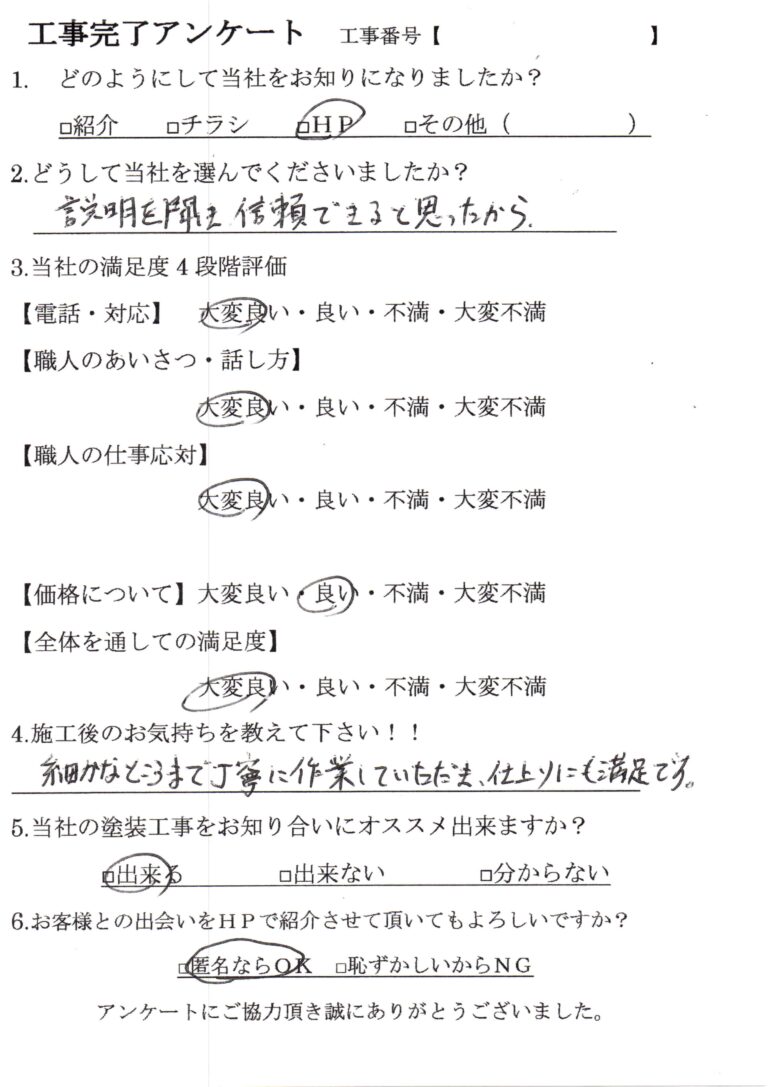 工事完了アンケート 工事番号【 】
1. どのようにして当社をお知りになりましたか？
□紹介 □チラシ □ＨＰ □その他（ ）
2.どうして当社を選んでくださいましたか？
説明を聞き信頼できると思ったから.
3.当社の満足度４段階評価
【電話・対応】 大変良い・良い・不満・大変不満
【職人のあいさつ・話し方】
大変良い・良い・不満・大変不満
【職人の仕事応対】
大変良い・良い・不満・大変不満
【価格について】大変良い・良い・不満・大変不満
【全体を通しての満足度】
大変良い・良い・不満・大変不満
4.施工後のお気持ちを教えて下さい！！
細かなところまで丁寧に作業していただき、仕上りにも満足です。
5.当社の塗装工事をお知り合いにオススメ出来ますか？
□出来る □出来ない □分からない
6.お客様との出会いをＨＰで紹介させて頂いてもよろしいですか？
□匿名ならＯＫ □恥ずかしいからＮＧ
アンケートにご協力頂き誠にありがとうございました。